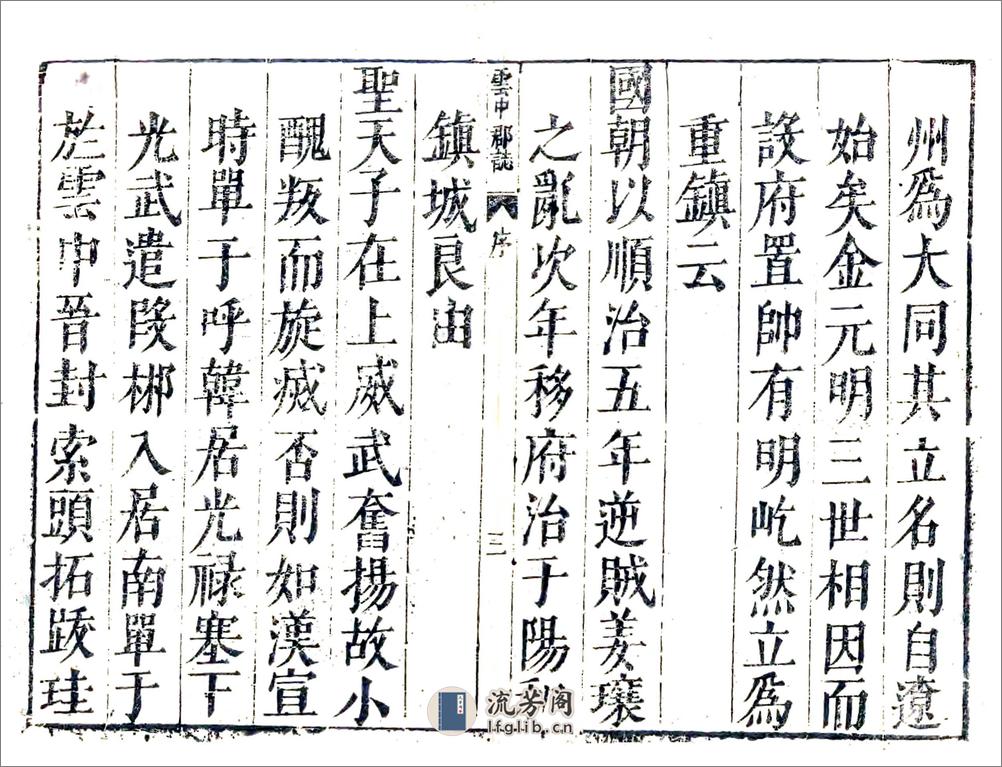 州爲大同其立名則自遼
始矣金元明三世相因而
設府置帥有明屹然立爲
重鎮云
國朝以順治五年逆賊姜瓖
之亂次年移府治于陽
雲中郡誌 序 三
鎮城良由
聖天子在上威武奮揚故小
醜叛而旋滅否則如漢宣
時單于呼韓居光祿塞下
光武遣段郴入居南單于
於雲中晉封索頭拓跋珪
流芳阁
lfglib.cn